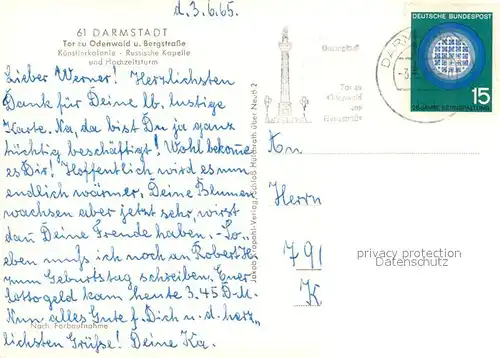 d. 3. 6. 65.
61 DARMSTADT
Tor zu Odenwald u. Bergstraße
Künstlerkolonie - Russische Kapelle
und Hochzeitsturm
Lieber Werner! Herzlichsten
Dank für Deine lb. lustige
Karte. Na, da bist Du ja ganz
tüchtig beschäftigt! Wohl bekome
es Dir! Hoffentlich wird es nun
endlich wärmer. Deine Blumen
wachsen aber jetzt sehr, wirst
dan Deine Freude haben. - So
eben muß ich noch an Robert H.
zum Geburtstag schreiben. Euer
Lottogeld kam heute 3.45 D-M.
Nun alles Gute f. Dich u. d. herz„
lichsten Grüße! Deine Ka.
Nach Farbaufnahme
Jakob Krapohl-Verlag, Schloß Hülchrath über Neuß 2
Tor zu
Odenwald
und
Bergstraße
DARM
-3.
DEUTSCHE BUNDESPOST
15
25 JAHRE KERNSPALTUNG
An
Herrn
791
K
privacy protection
Datenschutz